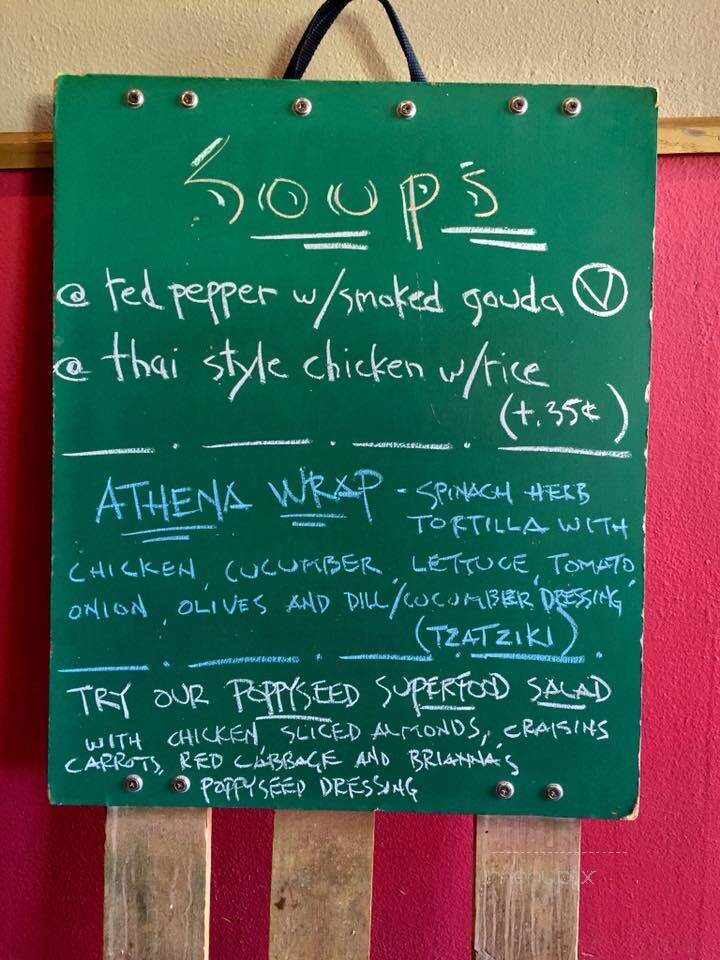 Soups
@ red pepper w/smoked gouda Ⓥ
@ thai style chicken w/rice
(+.35¢)
ATHENA WRAP - SPINACH HERB
TORTILLA WITH
CHICKEN, CUCUMBER, LETTUCE, TOMATO,
ONION, OLIVES AND DILL/CUCUMBER DRESSING
(TZATZIKI)
TRY OUR POPPYSEED SUPERFOOD SALAD
WITH CHICKEN SLICED ALMONDS, CRAISINS
CARROTS, RED CABBAGE AND BRIANNA'S
POPPYSEED DRESSING